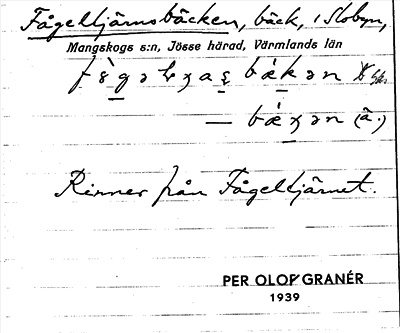 Fågeltjärnsbäcken, bäck, i Slobyn,
Mangskogs s:n, Jösse härad, Värmlands län
bǽkən
— bǽӽən (ä.)
Rinner från Fågeltjärnet.
PER OLOF GRANÉR
1939